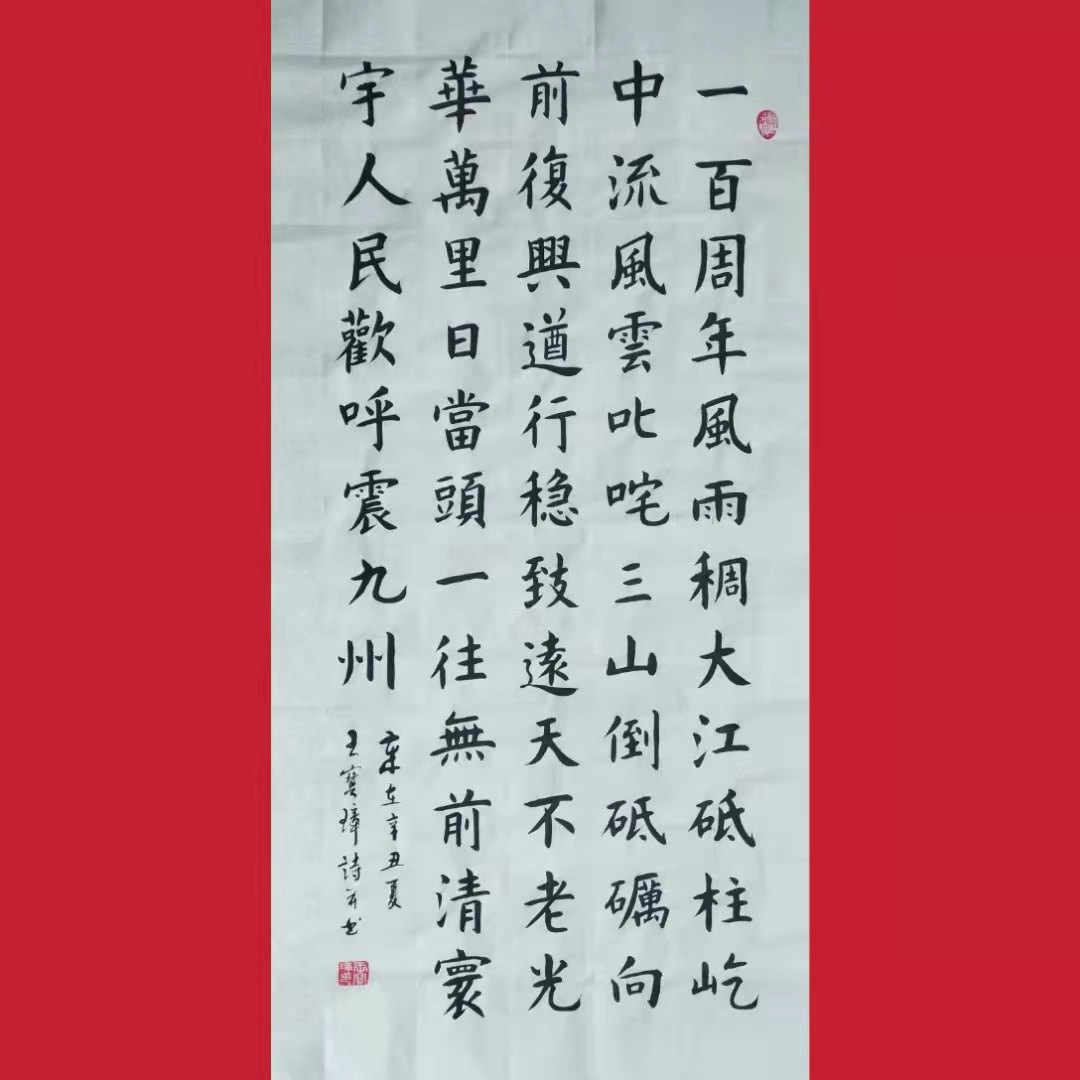 一百周年風雨稠大江砥柱屹
中流風雲叱咤三山倒砥礪向
前復興道行稳致遠天不老光
華萬里日當頭一往無前清寰
宇人民歡呼震九州
歲在辛丑夏
王寶璋詩并书